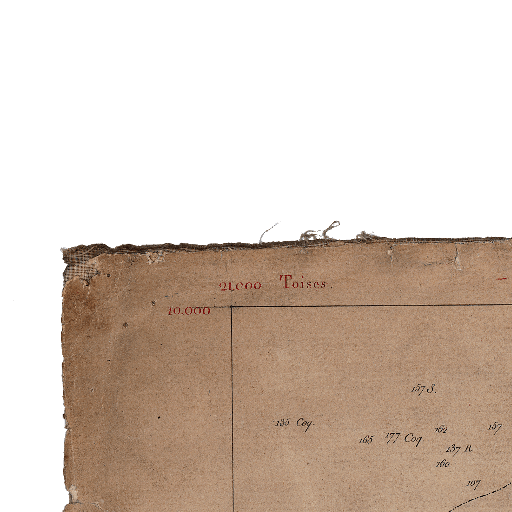 21,000 Toises.
10,000
157 S.
135 Coq.
165
177 Coq
162
157
157 R
160
107